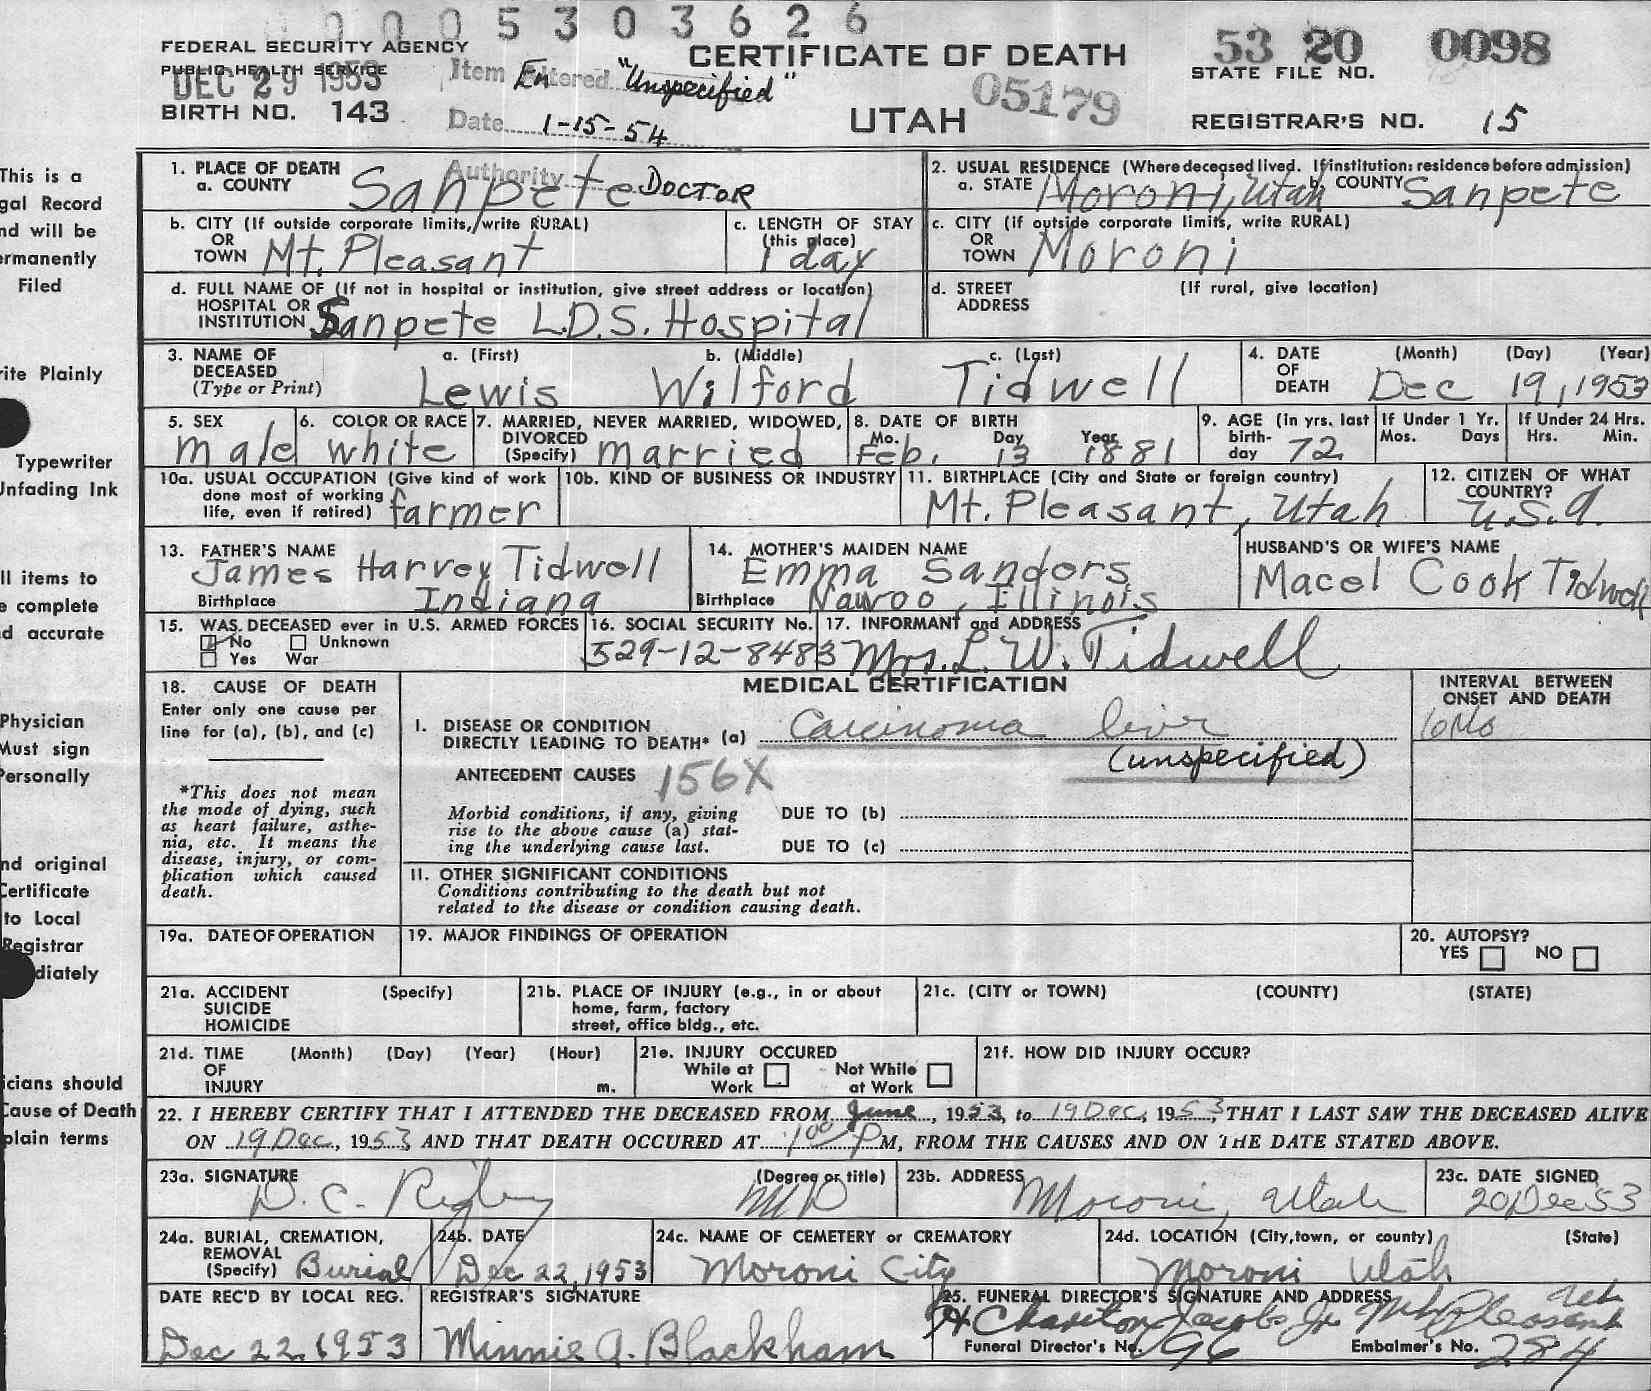 0 0 0 5 3 0 3 6 2 6
FEDERAL SECURITY AGENCY
PUBLIC HEALTH SERVICE
DEC 29 1953
BIRTH NO. 143
Item Entered "Unspecified"
Date 1-15-54
Authority DOCTOR
CERTIFICATE OF DEATH
UTAH
05179
53 20 0098
STATE FILE NO.
REGISTRAR'S NO. 15
This is a
gal Record
nd will be
ermanently
Filed
rite Plainly
Typewriter
Unfading Ink
ll items to
e complete
d accurate
Physician
Must sign
Personally
nd original
Certificate
to Local
Registrar
diately
icians should
Cause of Death
plain terms
1. PLACE OF DEATH
a. COUNTY Sanpete
2. USUAL RESIDENCE (Where deceased lived. If institution: residence before admission)
a. STATE Moroni, Utah b. COUNTY Sanpete
b. CITY (If outside corporate limits, write RURAL)
OR
TOWN Mt. Pleasant
c. LENGTH OF STAY
(this place)
1 day
c. CITY (if outside corporate limits, write RURAL)
OR
TOWN Moroni
d. FULL NAME OF (If not in hospital or institution, give street address or location)
HOSPITAL OR
INSTITUTION Sanpete L.D.S. Hospital
d. STREET (If rural, give location)
ADDRESS
3. NAME OF DECEASED
(Type or Print)
a. (First) b. (Middle) c. (Last)
Lewis Wilford Tidwell
4. DATE OF DEATH (Month) (Day) (Year)
Dec 19, 1953
5. SEX
male
6. COLOR OR RACE
white
7. MARRIED, NEVER MARRIED, WIDOWED,
DIVORCED
(Specify) married
8. DATE OF BIRTH
Mo. Day Year
Feb. 13 1881
9. AGE (in yrs. last
birth-
day 72
If Under 1 Yr.
Mos. Days
If Under 24 Hrs.
Hrs. Min.
10a. USUAL OCCUPATION (Give kind of work
done most of working
life, even if retired) farmer
10b. KIND OF BUSINESS OR INDUSTRY
11. BIRTHPLACE (City and State or foreign country)
Mt. Pleasant, Utah
12. CITIZEN OF WHAT
COUNTRY?
U.S.A.
13. FATHER'S NAME
James Harvey Tidwell
Birthplace Indiana
14. MOTHER'S MAIDEN NAME
Emma Sanders
Birthplace Nawoo, Illinois
HUSBAND'S OR WIFE'S NAME
Macel Cook Tidwell
15. WAS DECEASED ever in U.S. ARMED FORCES
No Unknown
Yes War
16. SOCIAL SECURITY No.
529-12-8483
17. INFORMANT and ADDRESS
Mrs. L. W. Tidwell
18. CAUSE OF DEATH
Enter only one cause per
line for (a), (b), and (c)
*This does not mean
the mode of dying, such
as heart failure, asthe-
nia, etc. It means the
disease, injury, or com-
plication which caused
death.
MEDICAL CERTIFICATION
I. DISEASE OR CONDITION
DIRECTLY LEADING TO DEATH* (a) Carcinoma liver
(unspecified)
ANTECEDENT CAUSES 156X
Morbid conditions, if any, giving
rise to the above cause (a) stat-
ing the underlying cause last.
DUE TO (b)
DUE TO (c)
II. OTHER SIGNIFICANT CONDITIONS
Conditions contributing to the death but not
related to the disease or condition causing death.
INTERVAL BETWEEN
ONSET AND DEATH
19a. DATE OF OPERATION
19. MAJOR FINDINGS OF OPERATION
20. AUTOPSY?
YES NO
21a. ACCIDENT (Specify)
SUICIDE
HOMICIDE
21b. PLACE OF INJURY (e.g., in or about
home, farm, factory
street, office bldg., etc.
21c. (CITY or TOWN) (COUNTY) (STATE)
21d. TIME (Month) (Day) (Year) (Hour)
OF
INJURY m.
21e. INJURY OCCURED
While at Work Not While at Work
21f. HOW DID INJURY OCCUR?
22. I HEREBY CERTIFY THAT I ATTENDED THE DECEASED FROM June, 1953, to 19 Dec, 1953, THAT I LAST SAW THE DECEASED ALIVE
ON 19 Dec, 1953 AND THAT DEATH OCCURED AT 1:00 PM, FROM THE CAUSES AND ON THE DATE STATED ABOVE.
23a. SIGNATURE (Degree or title)
D. C. Rigby MD
23b. ADDRESS
Moroni, Utah
23c. DATE SIGNED
20 Dec 53
24a. BURIAL, CREMATION,
REMOVAL
(Specify) Burial
24b. DATE
Dec 22, 1953
24c. NAME OF CEMETERY OR CREMATORY
Moroni City
24d. LOCATION (City, town, or county) (State)
Moroni Utah
DATE REC'D BY LOCAL REG.
Dec 22, 1953
REGISTRAR'S SIGNATURE
Minnie A. Blackham
25. FUNERAL DIRECTOR'S SIGNATURE AND ADDRESS
Jacobs Jr. Mt. Pleasant Utah
Funeral Director's No. 196
Embalmer's No. 284